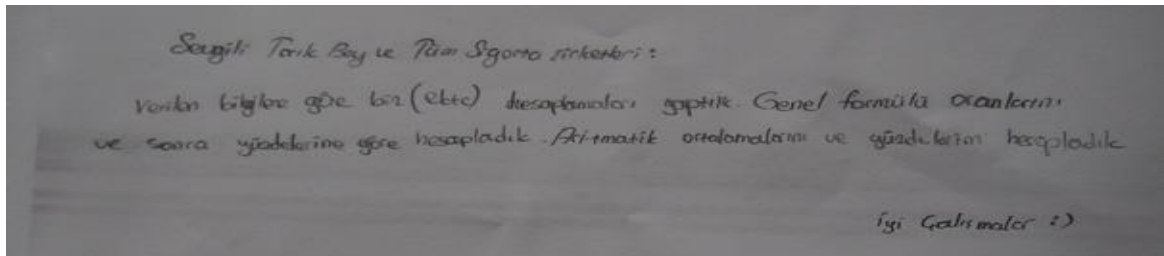 Sevgili Tarık Bey ve Tüm Sigorta şirketleri :
Verilen bilgilere göre biz (ebtc) hesaplamaları yaptık. Genel formülü oranlarını
ve sonra yüzdelerine göre hesapladık. Aritmatik ortalamalarını ve yüzdelerini hesapladık
iyi Çalışmalar :)